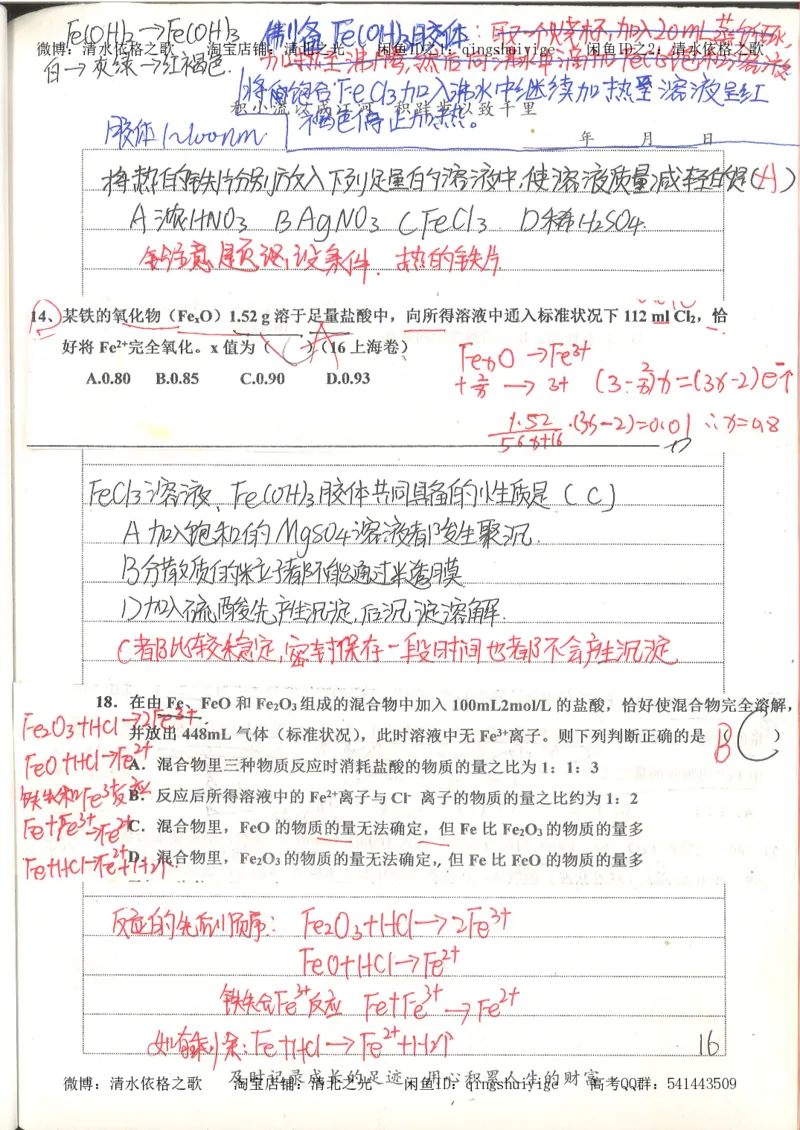 Fe(OH)₂→Fe(OH)₃ 制备Fe(OH)₃胶体：取一个烧杯，加入20mL蒸馏水，
微博：清水依格之歌 淘宝店铺：清北之光 闲鱼ID之1：qingshuiyige 闲鱼ID之2：清水依格之歌
白→灰绿→红褐色. 加热至沸腾，然后向沸水中滴加FeCl₃饱和溶液
将饱和FeCl₃加入沸水中继续加热至溶液呈红
积小流以成江河 积跬步以致千里
胶体1~100nm 褐色停止加热。
年 月 日
将热的铁片分别放入下列足量的溶液中,使溶液质量减轻的是(A)
A 浓HNO₃ B AgNO₃ C FeCl₃ D 稀H₂SO₄.
注意题设条件. 热的铁片
14、某铁的氧化物（FeₓO）1.52 g 溶于足量盐酸中，向所得溶液中通入标准状况下 112 ml Cl₂，恰
好将 Fe²⁺完全氧化。x 值为（ A ）(16 上海卷)
FeₓO → Fe³⁺
A.0.80 B.0.85 C.0.90 D.0.93
+2/x → 3+ (3-2/x)x=(3x-2)e⁻↑
1.52/56x+16 ·(3x-2)=0.01 ∴x=0.8
FeCl₃溶液、Fe(OH)₃胶体共同具备的性质是（C）
A 加入饱和的MgSO₄溶液都发生聚沉.
B 分散质的粒子都不能通过半透膜
D 加入硫酸先产生沉淀,后沉淀溶解.
C 都比较稳定,密封保存一段时间也都不会产生沉淀
18．在由 Fe、FeO 和 Fe₂O₃ 组成的混合物中加入 100mL2mol/L 的盐酸，恰好使混合物完全溶解，
Fe₂O₃+HCl→2Fe³⁺
并放出 448mL 气体（标准状况），此时溶液中无 Fe³⁺离子。则下列判断正确的是（ C ）
B
FeO+HCl→Fe²⁺
A．混合物里三种物质反应时消耗盐酸的物质的量之比为 1：1：3
铁先和Fe³⁺反应
B．反应后所得溶液中的 Fe²⁺离子与 Cl⁻ 离子的物质的量之比约为 1：2
Fe+Fe³⁺→Fe²⁺
C．混合物里，FeO 的物质的量无法确定，但 Fe 比 Fe₂O₃ 的物质的量多
Fe+HCl→Fe²⁺+H₂↑
D．混合物里，Fe₂O₃ 的物质的量无法确定，但 Fe 比 FeO 的物质的量多
反应的先后顺序：Fe₂O₃+HCl→2Fe³⁺
FeO+HCl→Fe²⁺
铁先会Fe³⁺反应 Fe+Fe³⁺→Fe²⁺
如有剩余：Fe+HCl→Fe²⁺+H₂↑
16
及时记录成长的足迹 用心积累人生的财富
微博：清水依格之歌 淘宝店铺：清北之光 闲鱼ID：qingshuiyige 高考QQ群：541443509